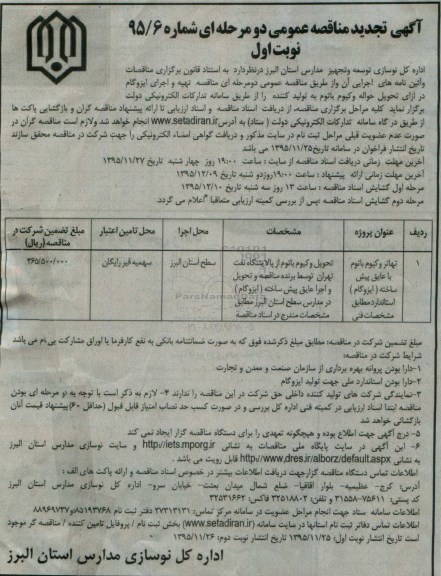 آگهی تجدید مناقصه عمومی دو مرحله ای شماره ۹۵/۶
نوبت اول
اداره کل نوسازی توسعه وتجهیز مدارس استان البرز درنظردارد به استناد قانون برگزاری مناقصات
وآئین نامه های اجرایی آن واز طریق مناقصه عمومی دومرحله ای مناقصه تهیه و اجرای ایزوگام
در ازای تحویل حواله وکیوم باتوم به تولید کننده را از طریق سامانه تدارکات الکترونیکی دولت
برگزار نماید کلیه مراحل برگزاری مناقصه، از دریافت اسناد مناقصه و اسناد ارزیابی تا ارائه پیشنهاد مناقصه گران و بازگشایی پاکت ها
از طریق در گاه سامانه تدارکات الکترونیکی دولت ( ستاد) به آدرس www.setadiran.ir انجام خواهد شد ولازم است مناقصه گران در
صورت عدم عضویت قبلی مراحل ثبت نام در سایت مذکور و دریافت گواهی امضاء الکترونیکی را جهت شرکت در مناقصه محقق سازند
تاریخ انتشار فراخوان در سامانه تاریخ ۱۳۹۵/۱۱/۲۵ می باشد
آخرین مهلت زمانی دریافت اسناد مناقصه از سایت : ساعت ۱۹:۰۰ روز چهار شنبه تاریخ ۱۳۹۵/۱۱/۲۷
آخرین مهلت زمانی ارائه پیشنهاد : ساعت ۱۹:۰۰روزدو شنبه تاریخ ۱۳۹۵/۱۲/۰۹
مرحله اول گشایش اسناد مناقصه : ساعت ۱۳ روز سه شنبه تاریخ ۱۳۹۵/۱۲/۱۰
مرحله دوم گشایش اسناد مناقصه :پس از بررسی کمیته ارزیابی متعاقبا اعلام می گردد.
ردیف عنوان پروژه مشخصات محل اجرا محل تامین اعتبار مبلغ تضمین شرکت در مناقصه (ریال)
۱ تهاتر وکیوم باتوم با عایق پیش ساخته (ایزوگام) استاندارد مطابق مشخصات فنی
تحویل وکیوم باتوم از پالایشگاه نفت تهران توسط برنده مناقصه و تحویل و اجرا عایق پیش ساخته (ایزوگام) در مدارس سطح استان البرز مطابق مشخصات مندرج در اسناد مناقصه
سطح استان البرز سهمیه قیر رایگان ۳۶۵/۵۰۰/۰۰۰
مبلغ تضمین شرکت در مناقصه: مطابق مبلغ ذکرشده فوق که به صورت ضمانتنامه بانکی به نفع کارفرما یا اوراق مشارکت بی نام می باشد
شرایط شرکت در مناقصه:
۱-دارا بودن پروانه بهره برداری از سازمان صنعت و معدن و تجارت
۲-دارا بودن استاندارد ملی جهت تولید ایزوگام
۳-نمایندگی شرکت های تولید کننده داخلی حق شرکت در این مناقصه را ندارند ۴- لازم به ذکر است با توجه به دو مرحله ای بودن
مناقصه ابتدا اسناد ارزیابی در کمیته فنی اداره کل بررسی و در صورت کسب حد نصاب امتیاز قابل قبول (حداقل ۶۰) پیشنهاد قیمت آنان
بازگشائی خواهد شد
۵- درج آگهی جهت اطلاع بوده و هیچگونه تعهدی را برای دستگاه مناقصه گزار ایجاد نمی کند
۶- این آگهی در سایت پایگاه ملی مناقصات به نشانی http//iets.mporg.ir و سایت نوسازی مدارس استان البرز
به نشانی http//www.dres.ir/alborz/default.aspx قابل رویت می باشد .
اطلاعات تماس دستگاه مناقصه گزارجهت دریافت اطلاعات بیشتر در خصوص اسناد مناقصه و ارائه پاکت های الف :
آدرس: کرج- عظیمیه- بلوار اقاقیا- ضلع شمال میدان بعثت- خیابان سرو- اداره کل نوسازی مدارس استان البرز
کد پستی: ۷۵۶۱۱-۳۱۵۵۸ و تلفن: ۳۲۵۱۸۸۰۲ فاکس: ۳۲۵۲۱۶۶۲
اطلاعات سامانه ستاد جهت انجام مراحل عضویت در سامانه مرکز تماس: ۲۷۳۱۳۱۳۱ دفتر ثبت نام ۸۵۱۹۳۷۶۸و۸۸۹۶۹۷۳۷
اطلاعات تماس دفاتر ثبت نام استانها در سایت سامانه (www.setadiran.ir) بخش ثبت نام / پروفایل تامین کننده / مناقصه گر موجود
است تاریخ انتشار نوبت اول: ۱۳۹۵/۱۱/۲۵ تاریخ انتشار نوبت دوم: ۱۳۹۵/۱۱/۲۶
اداره کل نوسازی مدارس استان البرز